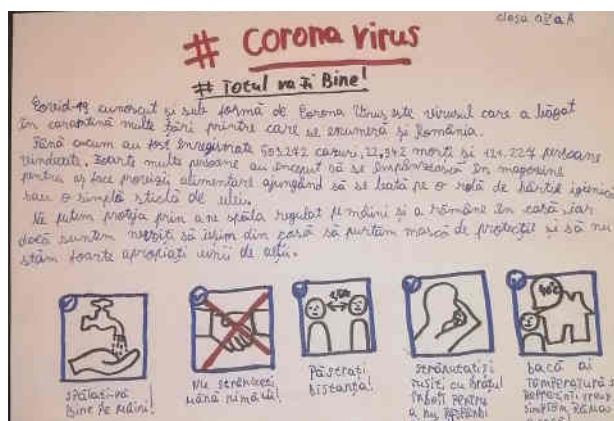 clasa a V a A
# Corona virus
# Totul va fi Bine!
Covid-19 cunoscut și sub formă de Corona Virus este virusul care a băgat
în carantină multe țări printre care se enumeră și România.
Până acum au fost înregistrate 593.242 cazuri, 22.942 morți și 121.227 persoane
vindecate. Foarte multe persoane au început să se împânzească în magazine
pentru aș face provizii alimentare ajungând să se bată pe o rolă de hârtie igienic
sau o simplă sticlă de ulei.
Ne putem proteja prin a ne spăla regulat pe mâini și a rămâne în casă iar
dacă suntem nevoiți să ieșim din casă să purtăm mască de protecție și să nu
stăm foarte apropiați unii de alții.
Spălați-vă
Bine pe Mâini!
Nu strângeți
mână nimănui!
Păstrați
Distanța!
strănutați și
tusiți cu brațul
îndoit pentru
a nu răspândi
Dacă ai
Temperatură
simptom Rămâi
acasă!